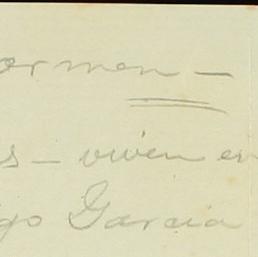 ormen —
s — viven en
go Garcia